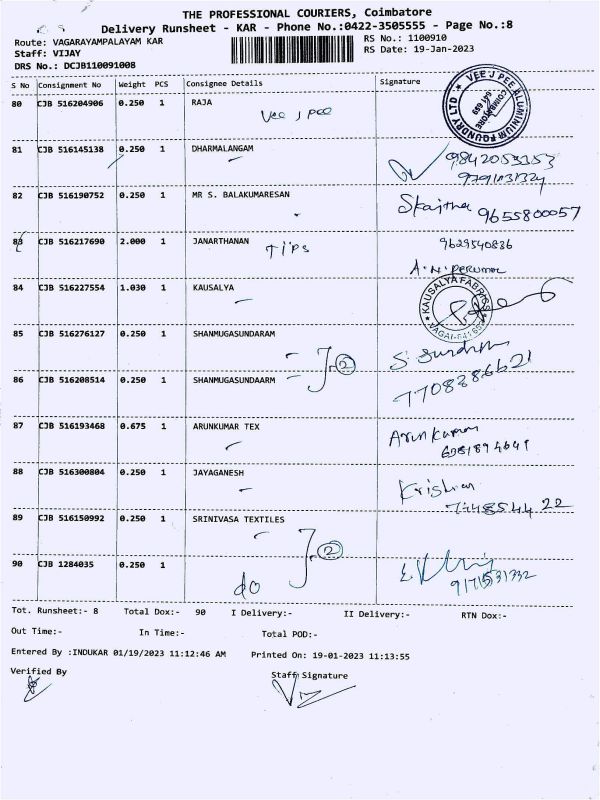 THE PROFESSIONAL COURIERS, Coimbatore
Delivery Runsheet - KAR - Phone No.:0422-3505555 - Page No.:8
Route: VAGARAYAMPALAYAM KAR
RS No.: 1100910
Staff: VIJAY
RS Date: 19-Jan-2023
DRS No.: DCJB110091008
S No Consignment No Weight PCS Consignee Details Signature
80 CJB 516204906 0.250 1 RAJA
Vee J Pee
VEE J PEE ALUMINIUM FOUNDRY LTD
COIMBATORE
641 659
81 CJB 516145138 0.250 1 DHARMALANGAM
9842053353
82 CJB 516190752 0.250 1 MR S. BALAKUMARESAN
9655800057
83 CJB 516217690 2.000 1 JANARTHANAN
Tips
9629540836
84 CJB 516227554 1.030 1 KAUSALYA
KAUSALYA FABRICS
85 CJB 516276127 0.250 1 SHANMUGASUNDARAM
2
86 CJB 516208514 0.250 1 SHANMUGASUNDAARM
7708286621
87 CJB 516193468 0.675 1 ARUNKUMAR TEX
Arunkumar
88 CJB 516300804 0.250 1 JAYAGANESH
Krishnan
89 CJB 516150992 0.250 1 SRINIVASA TEXTILES
2
90 CJB 1284035 0.250 1
do
9171531332
Tot. Runsheet:- 8 Total Dox:- 90 I Delivery:- II Delivery:- RTN Dox:-
Out Time:- In Time:- Total POD:-
Entered By :INDUKAR 01/19/2023 11:12:46 AM Printed On: 19-01-2023 11:13:55
Verified By
Staff Signature